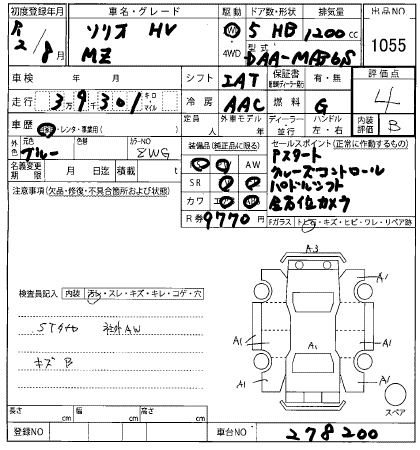 初度登録年月 車名・グレード 駆動 ドア数・形状 排気量 出品NO
R2/8月 ソリオ HV FF 5 HB 1200cc
MZ 4WD 型式 DAA-MA36S 1055
車検 年 月 シフト IAT 保証書 有・無 評価点
走行 3万9千301 キロ・マイル 冷房 AAC 燃料 G 4
車歴 自家・レンタ・事業用( ) 定員 人 外車モデル 年 ディーラー 並行 ハンドル 左・右 内装評価 B
外色 元色 ブルー 色替 カラーNO ZWG 装備品(純正品に限る) セールスポイント(正常に作動するもの)
名義変更期限 月 日迄 積載 t AW Pスタート
注意事項(欠品・修復・不具合箇所および状態) SR クルーズコントロール
カワ パドルシフト
R券 9770円 全方位カメラ
Fガラス トビ石・キズ・ヒビ・ワレ・リペア跡
A3
検査員記入 内装 汚れ・スレ・キズ・キレ・コゲ・穴 A1 A1
STタイヤ 社外AW A1 A1 A1
キズ B A1 A1
スペア
長さ cm 幅 cm 高さ cm
登録NO 車台NO 278200